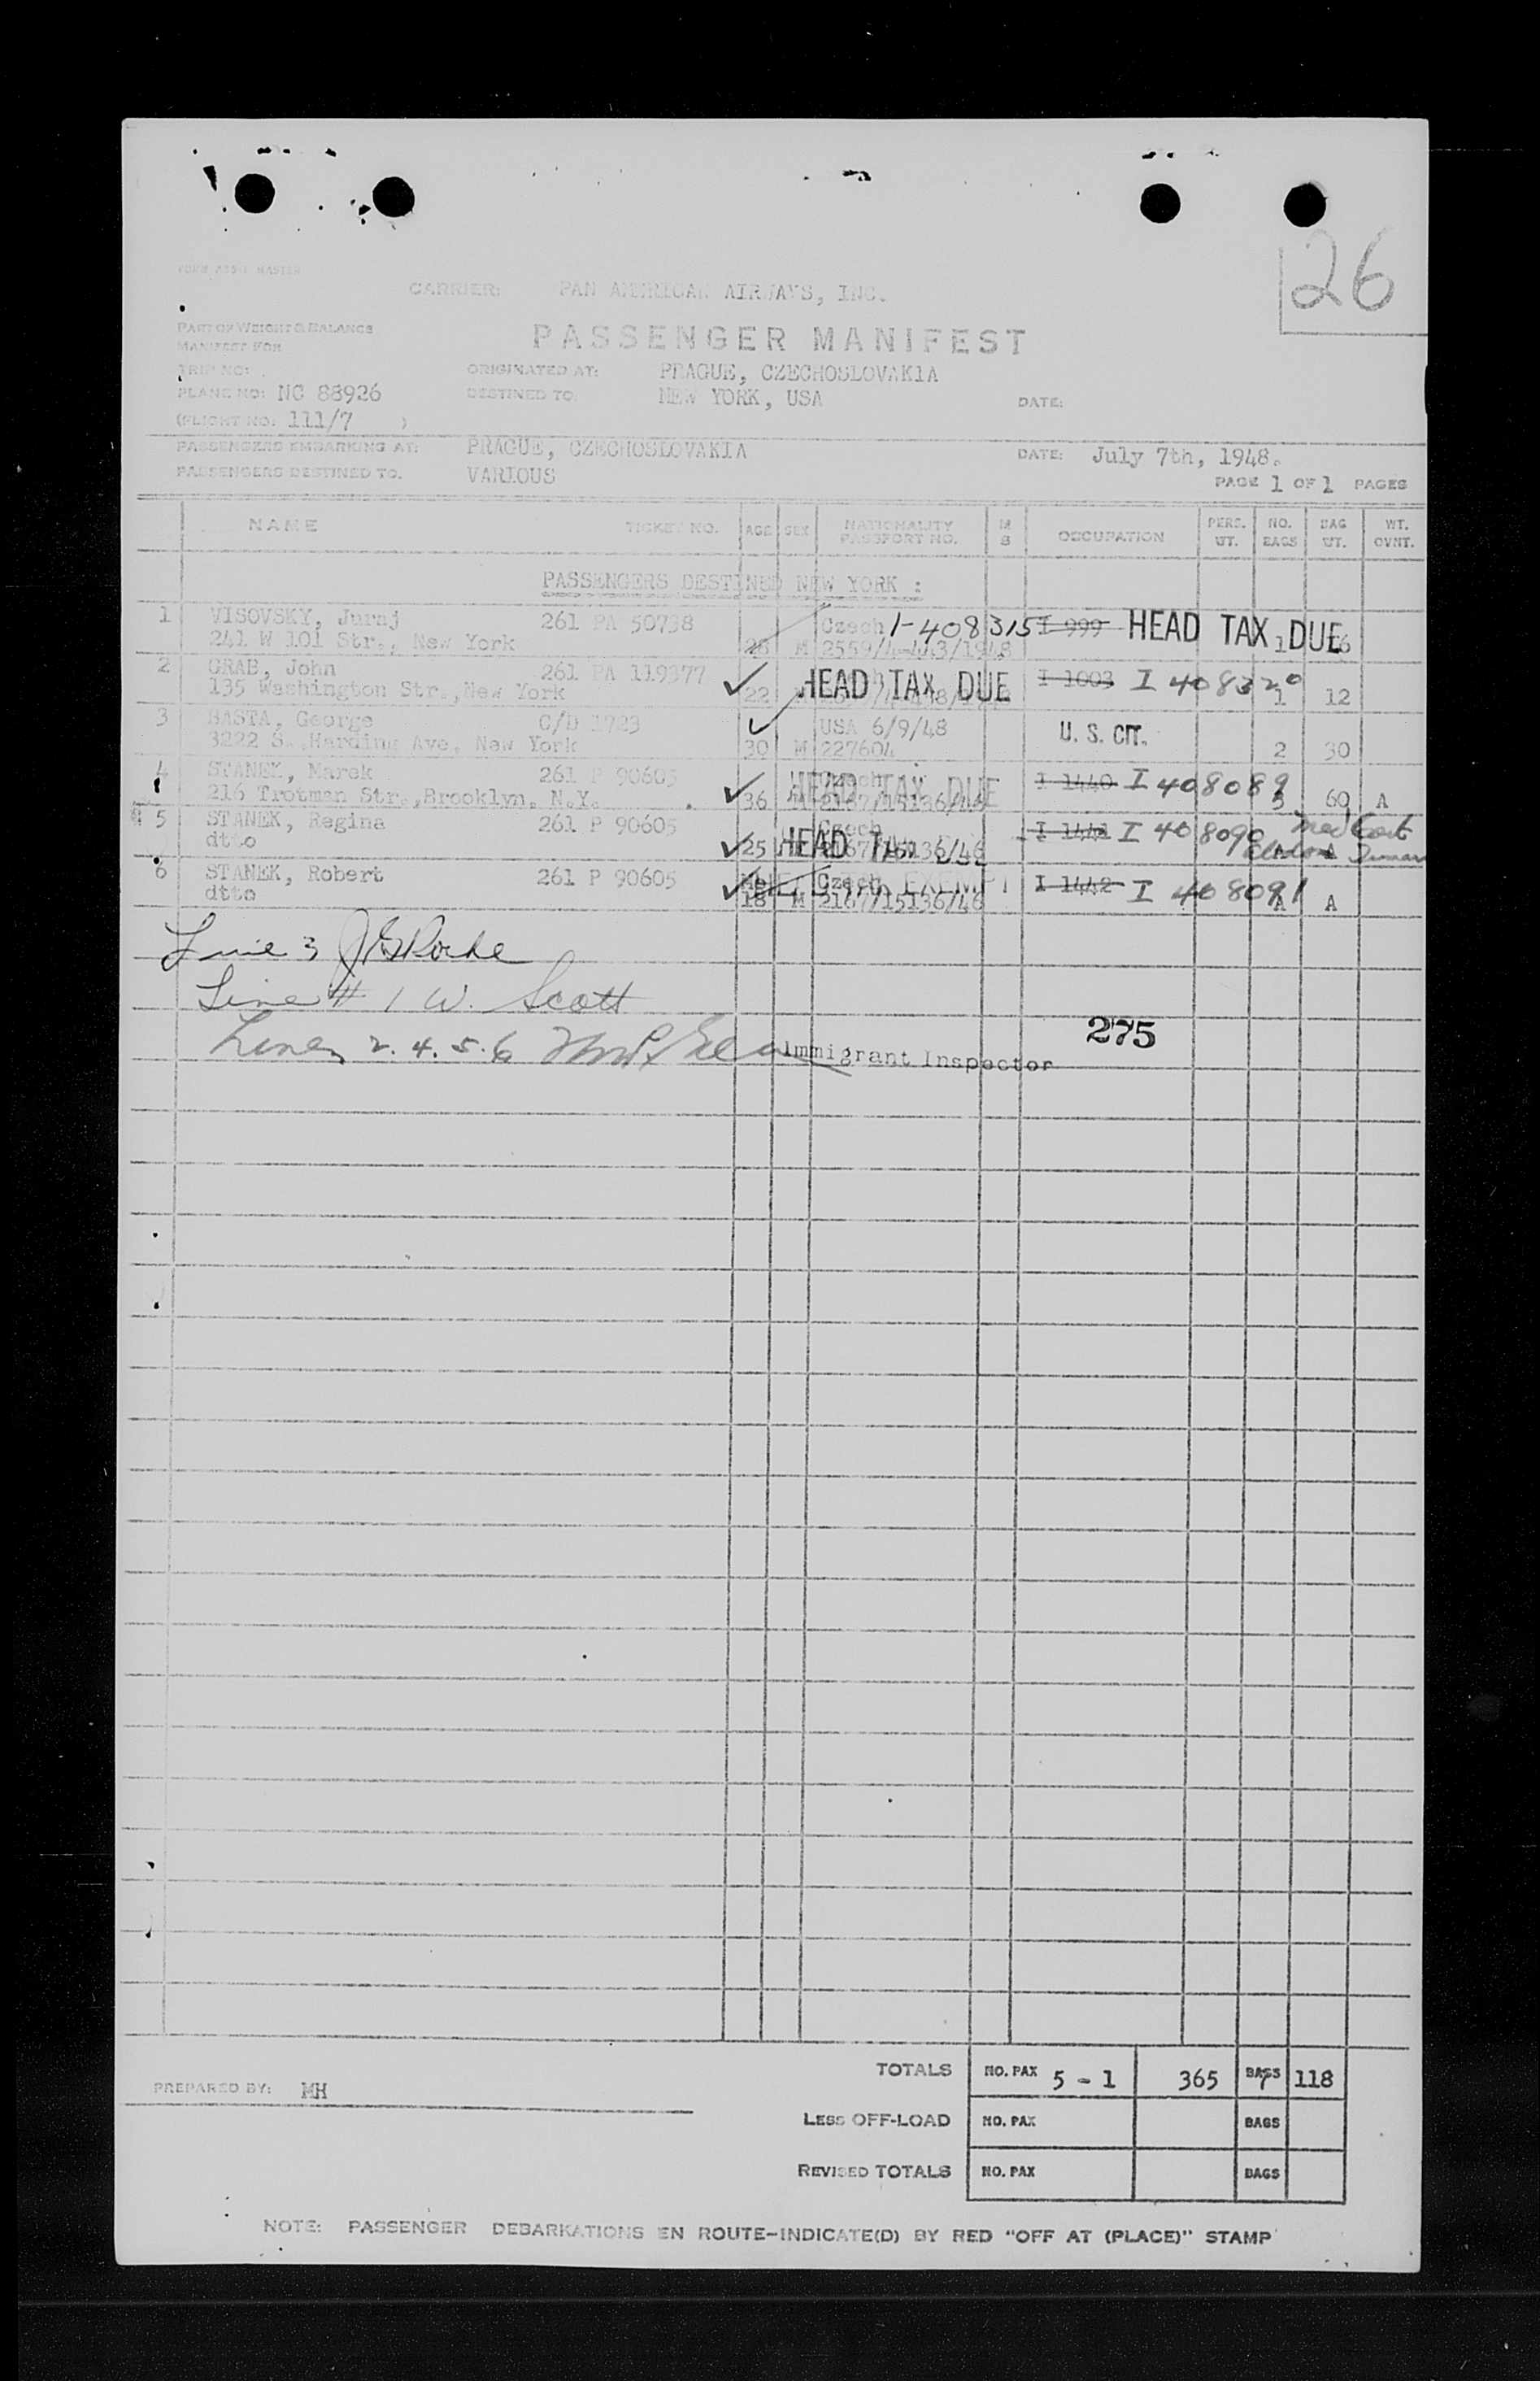 26
CARRIER: PAN AMERICAN AIRWAYS, INC.
PART OF WEIGHT & BALANCE
MANIFEST FOR
PASSENGER MANIFEST
TRIP NO:
ORIGINATED AT: PRAGUE, CZECHOSLOVAKIA
PLANE NO: NC 88926
DESTINED TO: NEW YORK, USA
DATE:
(FLIGHT NO: 111/7 )
PASSENGERS EMBARKING AT: PRAGUE, CZECHOSLOVAKIA
DATE: July 7th, 1948.
PASSENGERS DESTINED TO. VARIOUS
PAGE 1 OF 1 PAGES
NAME TICKET NO. AGE SEX NATIONALITY PASSPORT NO. M S OCCUPATION PERS. WT. NO. BAGS BAG WT. WT. OVNT.
PASSENGERS DESTINED NEW YORK :
1 VISOVSKY, Juraj 261 PA 50738 Czech 1-408315 I 999 HEAD TAX DUE
241 W 101 Str., New York M 1
2 GRAB, John 261 PA 119377 HEAD TAX DUE I 1003 I 408320
135 Washington Str.,New York 22 1 12
3 BASTA, George C/D 1723 USA 6/9/48 U. S. CIT.
3222 S. Harding Ave, New York 30 M 227604 2 30
4 STANEK, Marek 261 P 90605 Czech HEAD TAX DUE I 1440 I 408089
216 Trotman Str.,Brooklyn, N.Y. 36 M 2167/15136/46 3 60 A
5 STANEK, Regina 261 P 90605 Czech I 1441 I 408090 Med Cert
dtto 25 HEAD TAX 2167/15136/46 A A
6 STANEK, Robert 261 P 90605 Czech EXEMPT I 1442 I 408091
dtto 18 M 2167/15136/46 A A
Line 3
Line # 1 W. Scott
Lines 2. 4. 5. 6 Immigrant Inspector
275
TOTALS NO. PAX 5 - 1 365 BAGS 7 118
PREPARED BY: MH
LESS OFF-LOAD NO. PAX BAGS
REVISED TOTALS NO. PAX BAGS
NOTE: PASSENGER DEBARKATIONS EN ROUTE-INDICATE(D) BY RED "OFF AT (PLACE)" STAMP